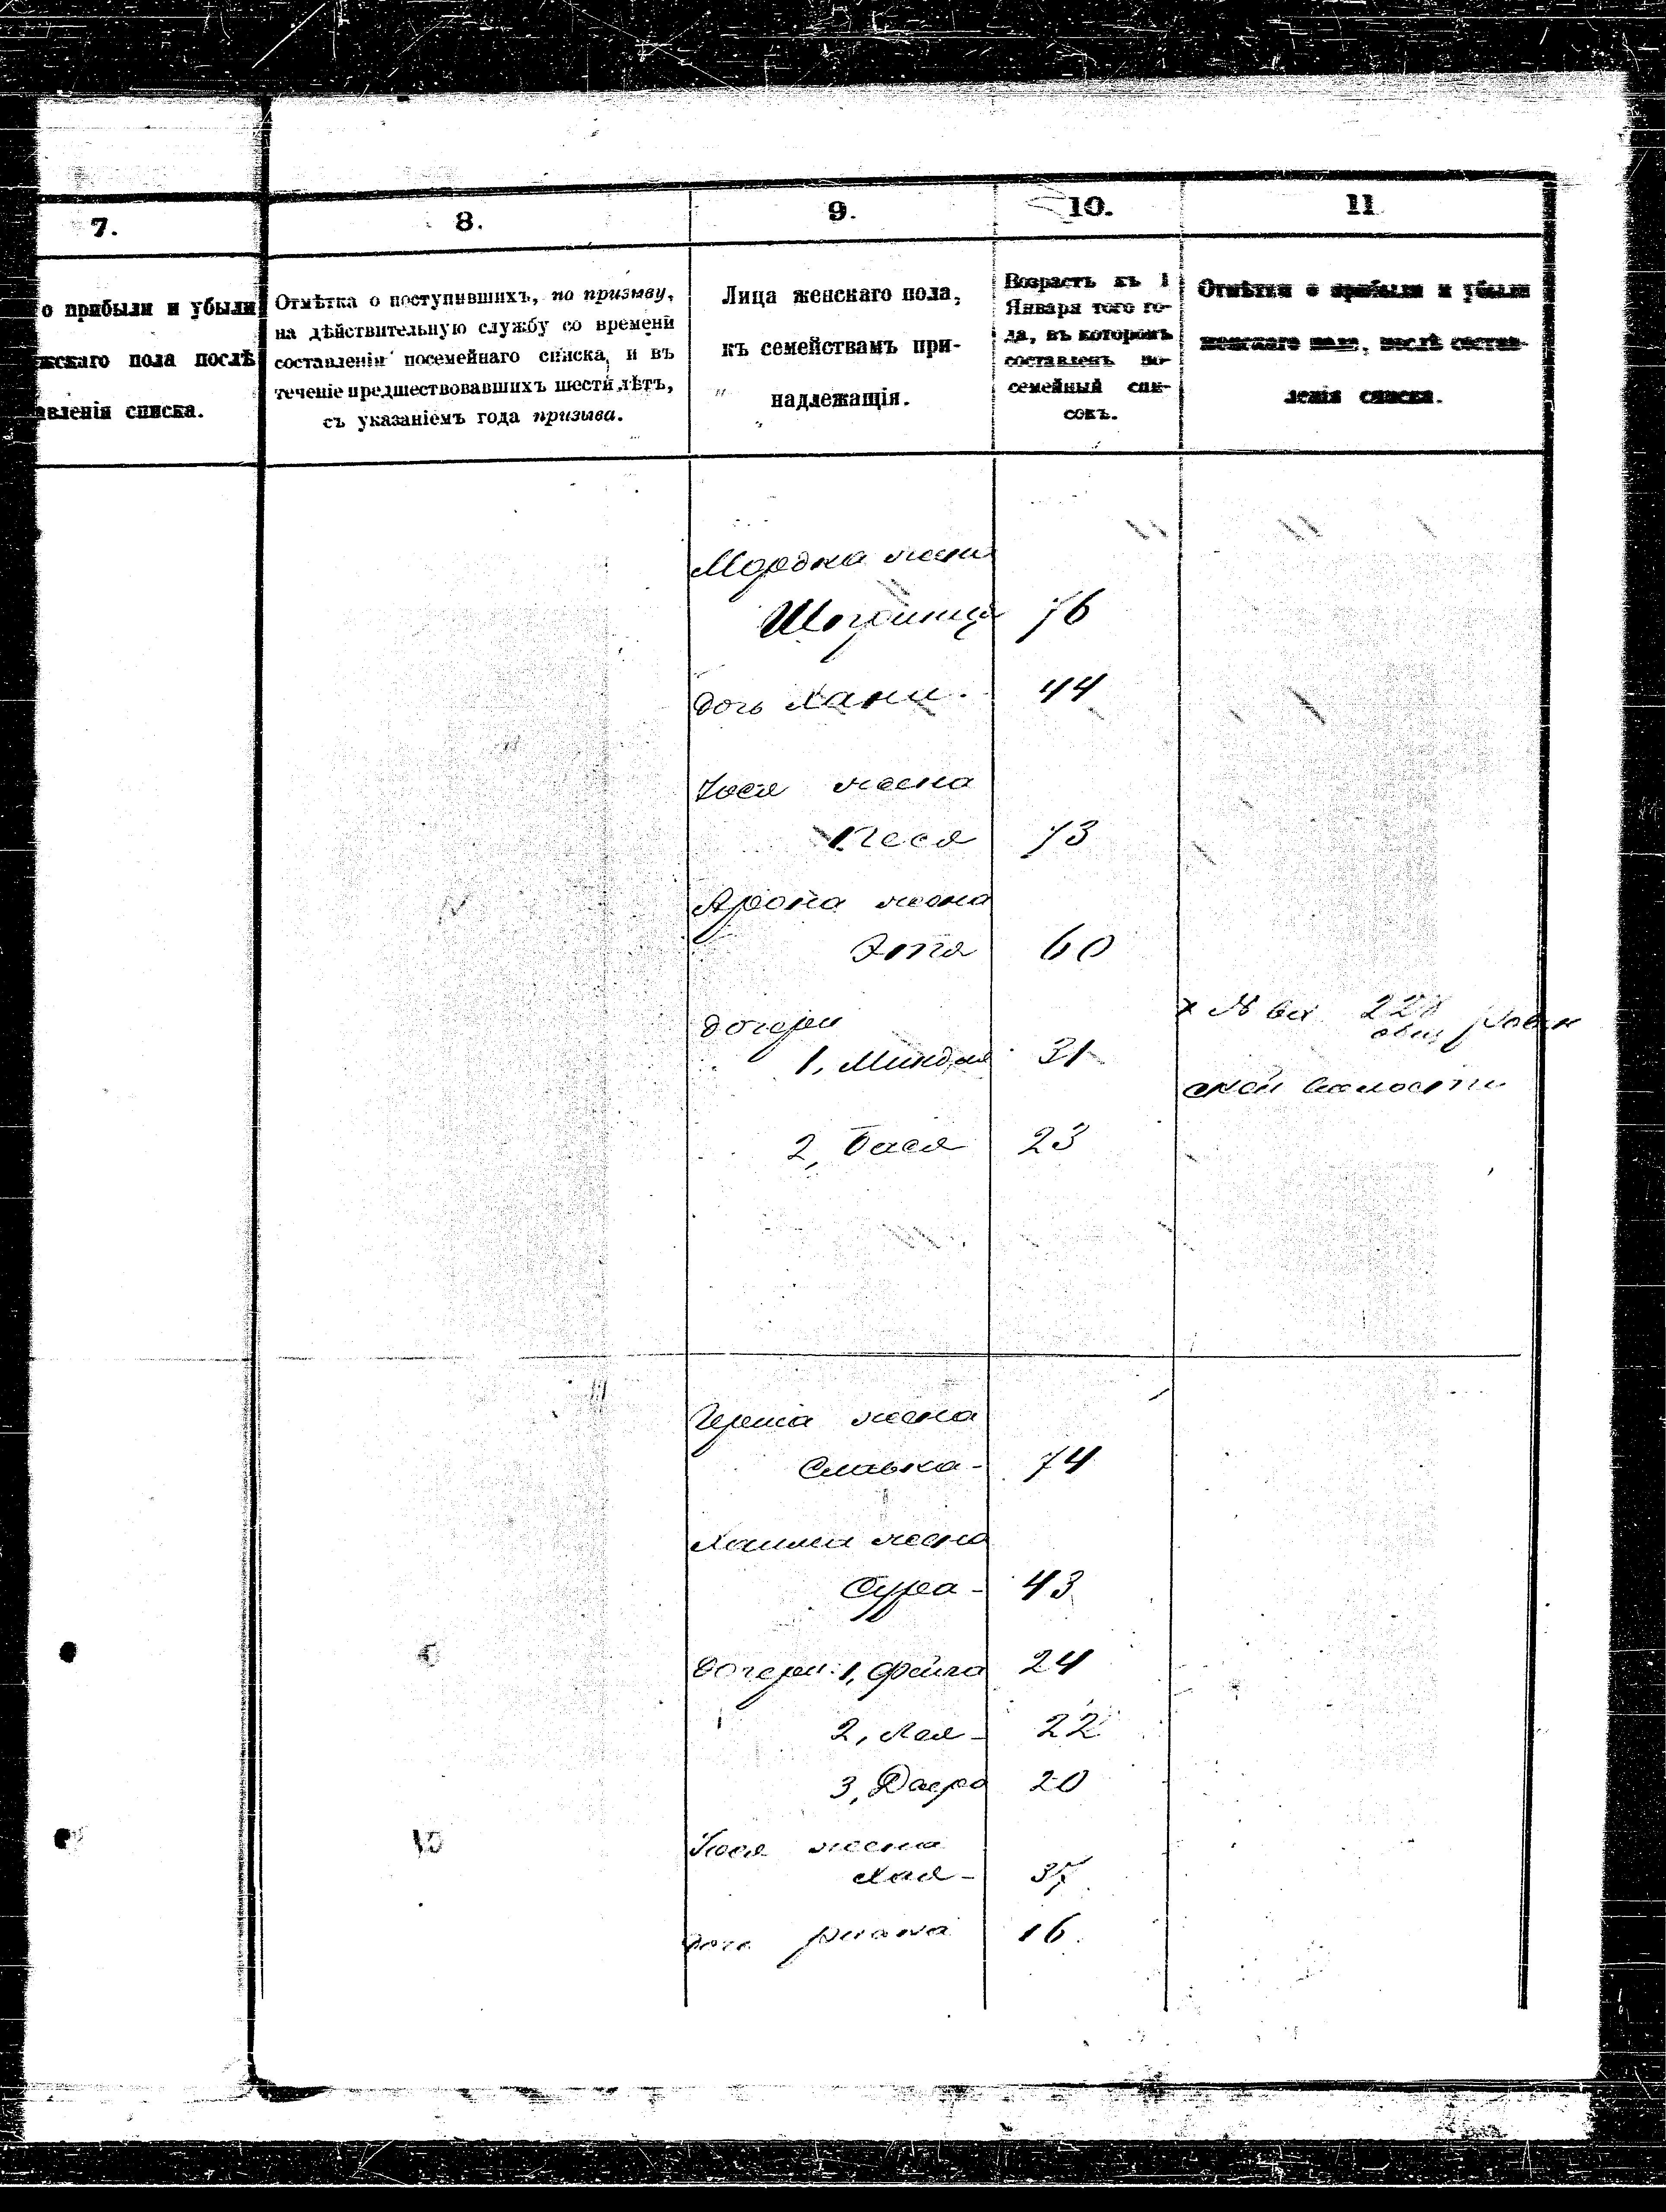 7.
8.
9.
10.
11
о прибыли и убыли
жскаго пола послѣ
авленія списка.
Отмѣтка о поступившихъ, по призыву,
на дѣйствительную службу со времени
составленія посемейнаго списка, и въ
теченіе предшествовавшихъ шести лѣтъ,
съ указаніемъ года призыва.
Лица женскаго пола,
къ семействамъ при-
надлежащія.
Возрастъ къ 1
Января того го-
да, въ которомъ
составленъ по-
семейный спи-
сокъ.
Отмѣтки о прибыли и убыли
женскаго пола, послѣ состав-
ленія списка.
Мордка жена
76
дочь Хана. 44
жена
Песя 73
Арона жена
Эта 60
дочери
1, Миндля 31
2, Бася 23
228
ской волости
Герша жена
Славка - 74
Хаима жена
Сура - 43
дочери: 1, Фейга 24
2, Лея - 22
3, 20
жена
Хая - 37
дочь 16